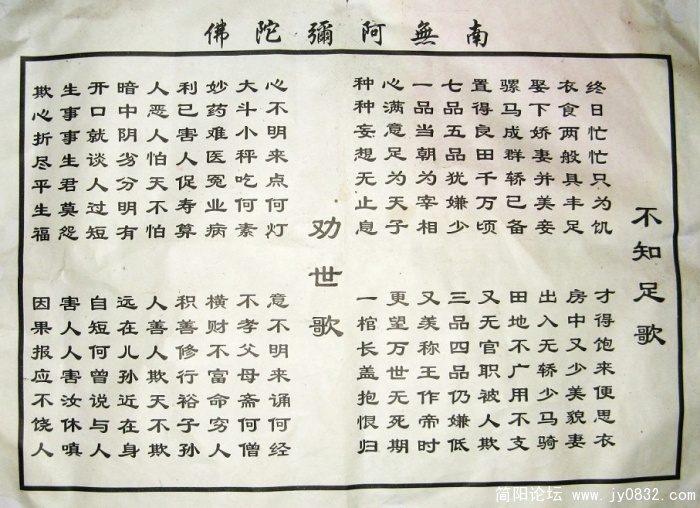 南無阿彌陀佛
不知足歌
终日忙忙只为饥
才得饱来便思衣
衣食两般具丰足
房中又少美貌妻
娶下娇妻并美妾
出入无轿少马骑
骡马成群轿已备
田地不广用不支
置得良田千万顷
又无官职被人欺
七品五品犹嫌少
三品四品仍嫌低
一品当朝为宰相
又羡称王作帝时
心满意足为天子
更望万世无死期
种种妄想无止息
一棺长盖抱恨归
劝世歌
心不明来点何灯
意不明来诵何经
大斗小秤吃何素
不孝父母斋何僧
妙药难医冤业病
横财不富命穷人
利已害人促寿算
积善修行裕子孙
人恶人怕天不怕
人善人欺天不欺
暗中阴劣分明有
远在儿孙近在身
开口就谈人过短
自短何曾说与人
生事事生君莫怨
害人人害汝休嗔
欺心折尽平生福
因果报应不饶人
简阳论坛 www.jy0832.com